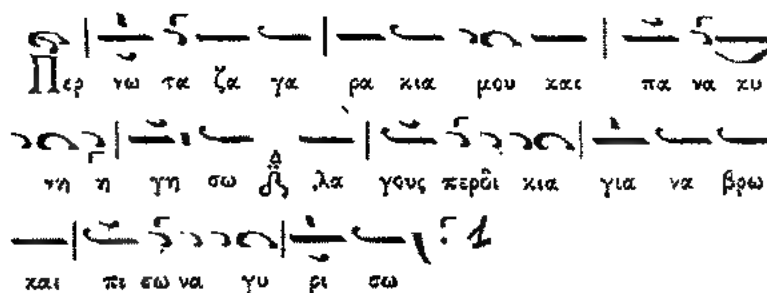 Περ νω τα ζα γα ρα κια μου και πα να κυ
νη η γη σω λα γους περδι κια για να βρω
και πι σω να γυ ρι σω 1